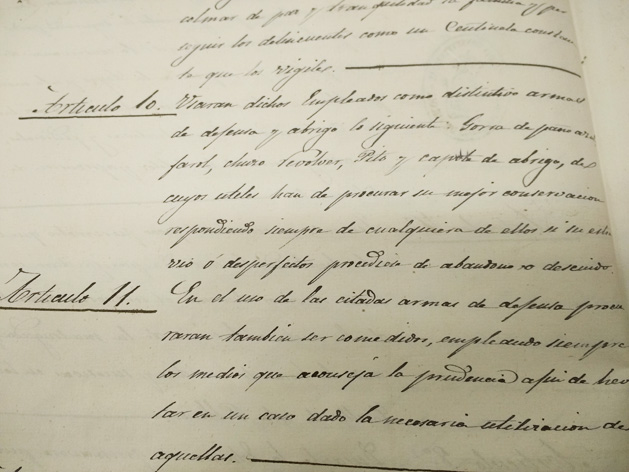 colmar de paz y tranquilidad la familia y per
seguir los delincuentes como un Centinela constan
te que los vigiles.
Articulo 10. Usaran dichos Empleados como distintivo armas
de defensa y abrigo lo siguiente Gorra de paño azul
farol, chuzo revolver, Pito y capote de abrigo, de
cuyos utiles han de procurar su mejor conservacion
respondiendo siempre de cualquiera de ellos si su estra
vio ó desperfectos procediese de abandono o descuido.
Articulo 11. En el uso de las citadas armas de defensa procu
raran tambien ser comedidos, empleando siempre
los medios que aconseja la prudencia afin de hevi
tar en un caso dado la necesaria utilizacion de
aquellas.